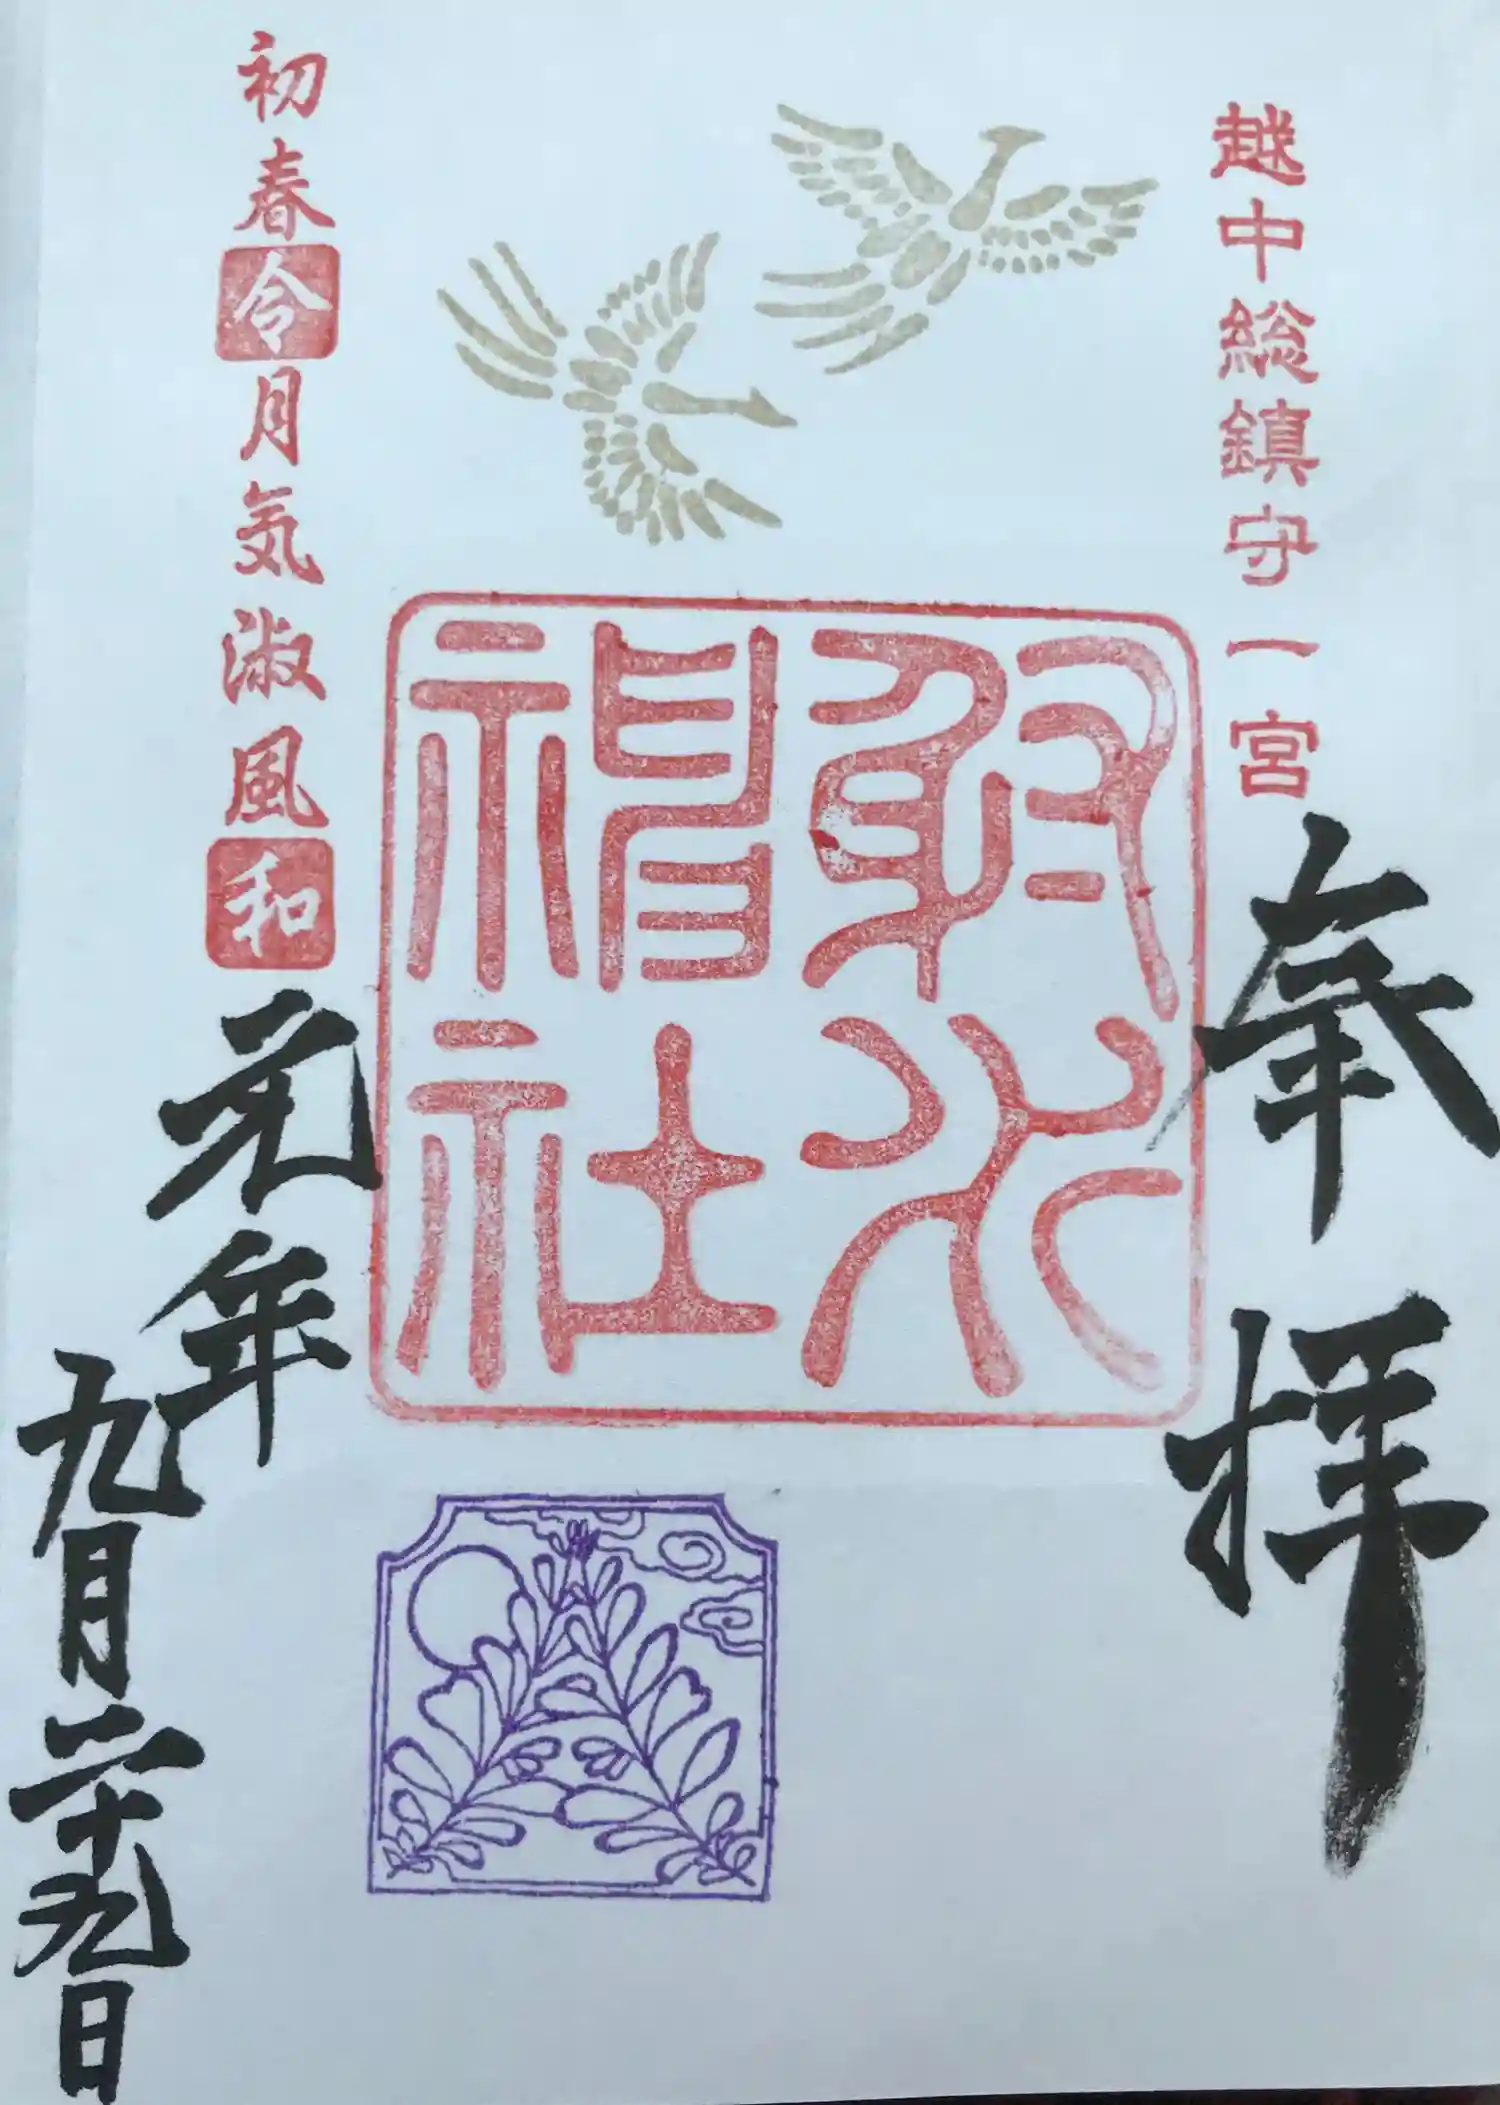 越中総鎮守一宮
奉拝
射水
神社
初春令月気淑風和
元年
九月二十九日